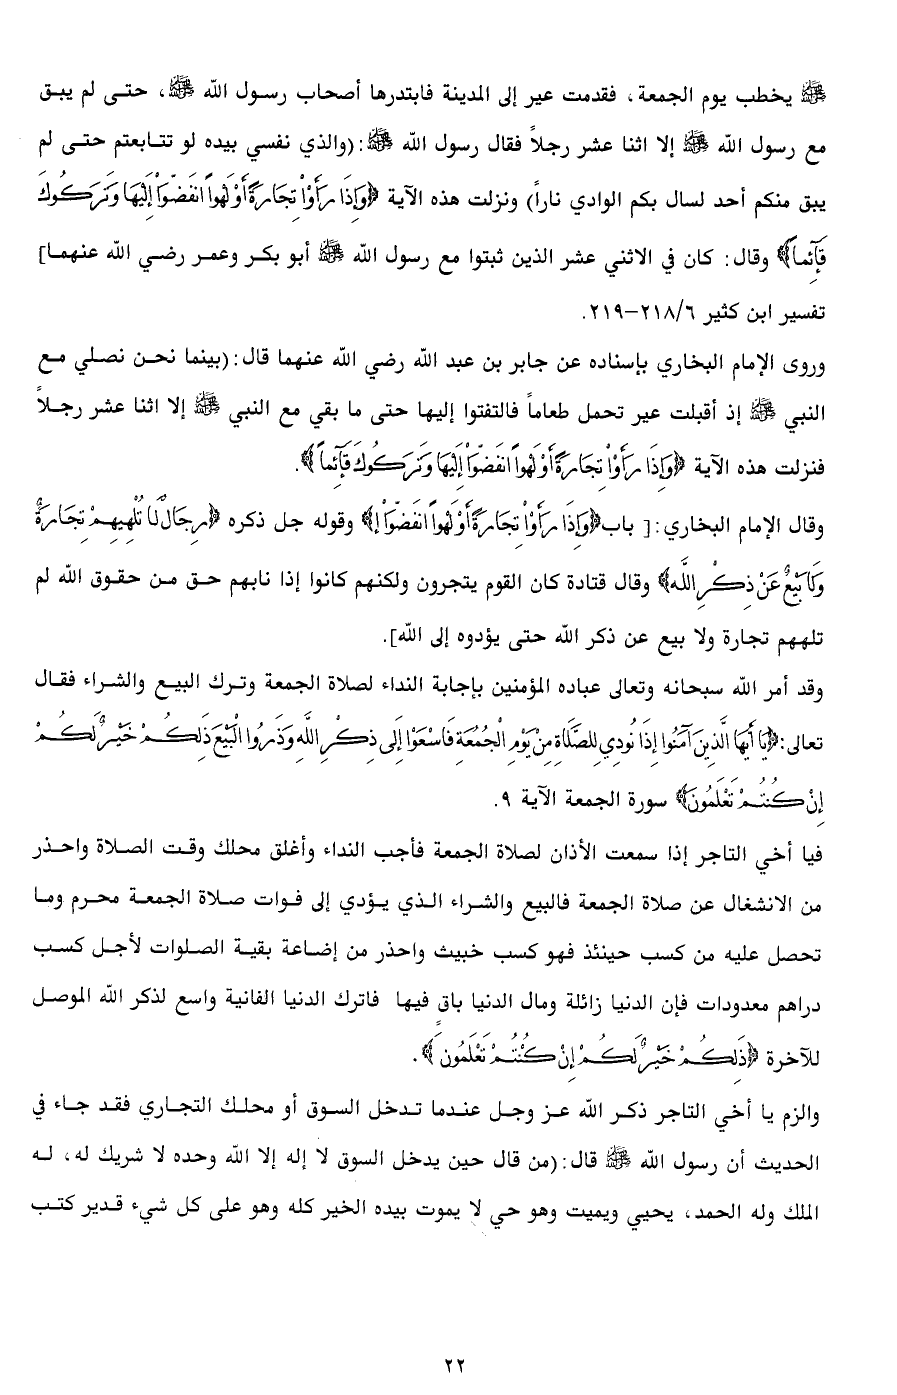 ﷺ يخطب يوم الجمعة، فقدمت عير إلى المدينة فابتدرها أصحاب رسول الله ﷺ، حتى لم يبق
مع رسول الله ﷺ إلا اثنا عشر رجلاً فقال رسول الله ﷺ:(والذي نفسي بيده لو تتابعتم حتى لم
يبق منكم أحد لسال بكم الوادي ناراً) ونزلت هذه الآية ﴿وَإِذَا رَأَوْا تِجَارَةً أَوْ لَهْواً انفَضُّوا إِلَيْهَا وَتَرَكُوكَ
قَآئِماً﴾ وقال: كان في الاثني عشر الذين ثبتوا مع رسول الله ﷺ أبو بكر وعمر رضي الله عنهما]
تفسير ابن كثير ٢١٨/٦–٢١٩.
وروى الإمام البخاري بإسناده عن جابر بن عبد الله رضي الله عنهما قال:(بينما نحن نصلي مع
النبي ﷺ إذ أقبلت عير تحمل طعاماً فالتفتوا إليها حتى ما بقي مع النبي ﷺ إلا اثنا عشر رجلاً
فنزلت هذه الآية ﴿وَإِذَا رَأَوْا تِجَارَةً أَوْ لَهْواً انفَضُّوا إِلَيْهَا وَتَرَكُوكَ قَآئِماً﴾.
وقال الإمام البخاري:[ باب﴿وَإِذَا رَأَوْا تِجَارَةً أَوْ لَهْواً انفَضُّوا إ﴾ وقوله جل ذكره ﴿رِجَالٌ لَا تُلْهِيهِمْ تِجَارَةٌ
وَلَا بَيْعٌ عَنْ ذِكْرِ اللَّه﴾ وقال قتادة كان القوم يتجرون ولكنهم كانوا إذا نابهم حق من حقوق الله لم
تلههم تجارة ولا بيع عن ذكر الله حتى يؤدوه إلى الله].
وقد أمر الله سبحانه وتعالى عباده المؤمنين بإجابة النداء لصلاة الجمعة وترك البيع والشراء فقال
تعالى:﴿يَا أَيُّهَا الَّذِينَ آمَنُوا إِذَا نُودِي لِلصَّلَاةِ مِنْ يَوْمِ الْجُمُعَةِ فَاسْعَوْا إِلَى ذِكْرِ اللَّهِ وَذَرُوا الْبَيْعَ ذَلِكُمْ خَيْرٌ لَكُمْ
إِنْ كُنْتُمْ تَعْلَمُونَ﴾ سورة الجمعة الآية ٩.
فيا أخي التاجر إذا سمعت الأذان لصلاة الجمعة فأجب النداء وأغلق محلك وقت الصلاة واحذر
من الانشغال عن صلاة الجمعة فالبيع والشراء الذي يؤدي إلى فوات صلاة الجمعة محرم وما
تحصل عليه من كسب حينئذ فهو كسب خبيث واحذر من إضاعة بقية الصلوات لأجل كسب
دراهم معدودات فإن الدنيا زائلة ومال الدنيا باقٍ فيها فاترك الدنيا الفانية واسع لذكر الله الموصل
للآخرة ﴿ذَلِكُمْ خَيْرٌ لَكُمْ إِنْ كُنْتُمْ تَعْلَمُونَ﴾.
والزم يا أخي التاجر ذكر الله عز وجل عندما تدخل السوق أو محلك التجاري فقد جاء في
الحديث أن رسول الله ﷺ قال:(من قال حين يدخل السوق لا إله إلا الله وحده لا شريك له، له
الملك وله الحمد، يحيي ويميت وهو حي لا يموت بيده الخير كله وهو على كل شيء قدير كتب
٢٢